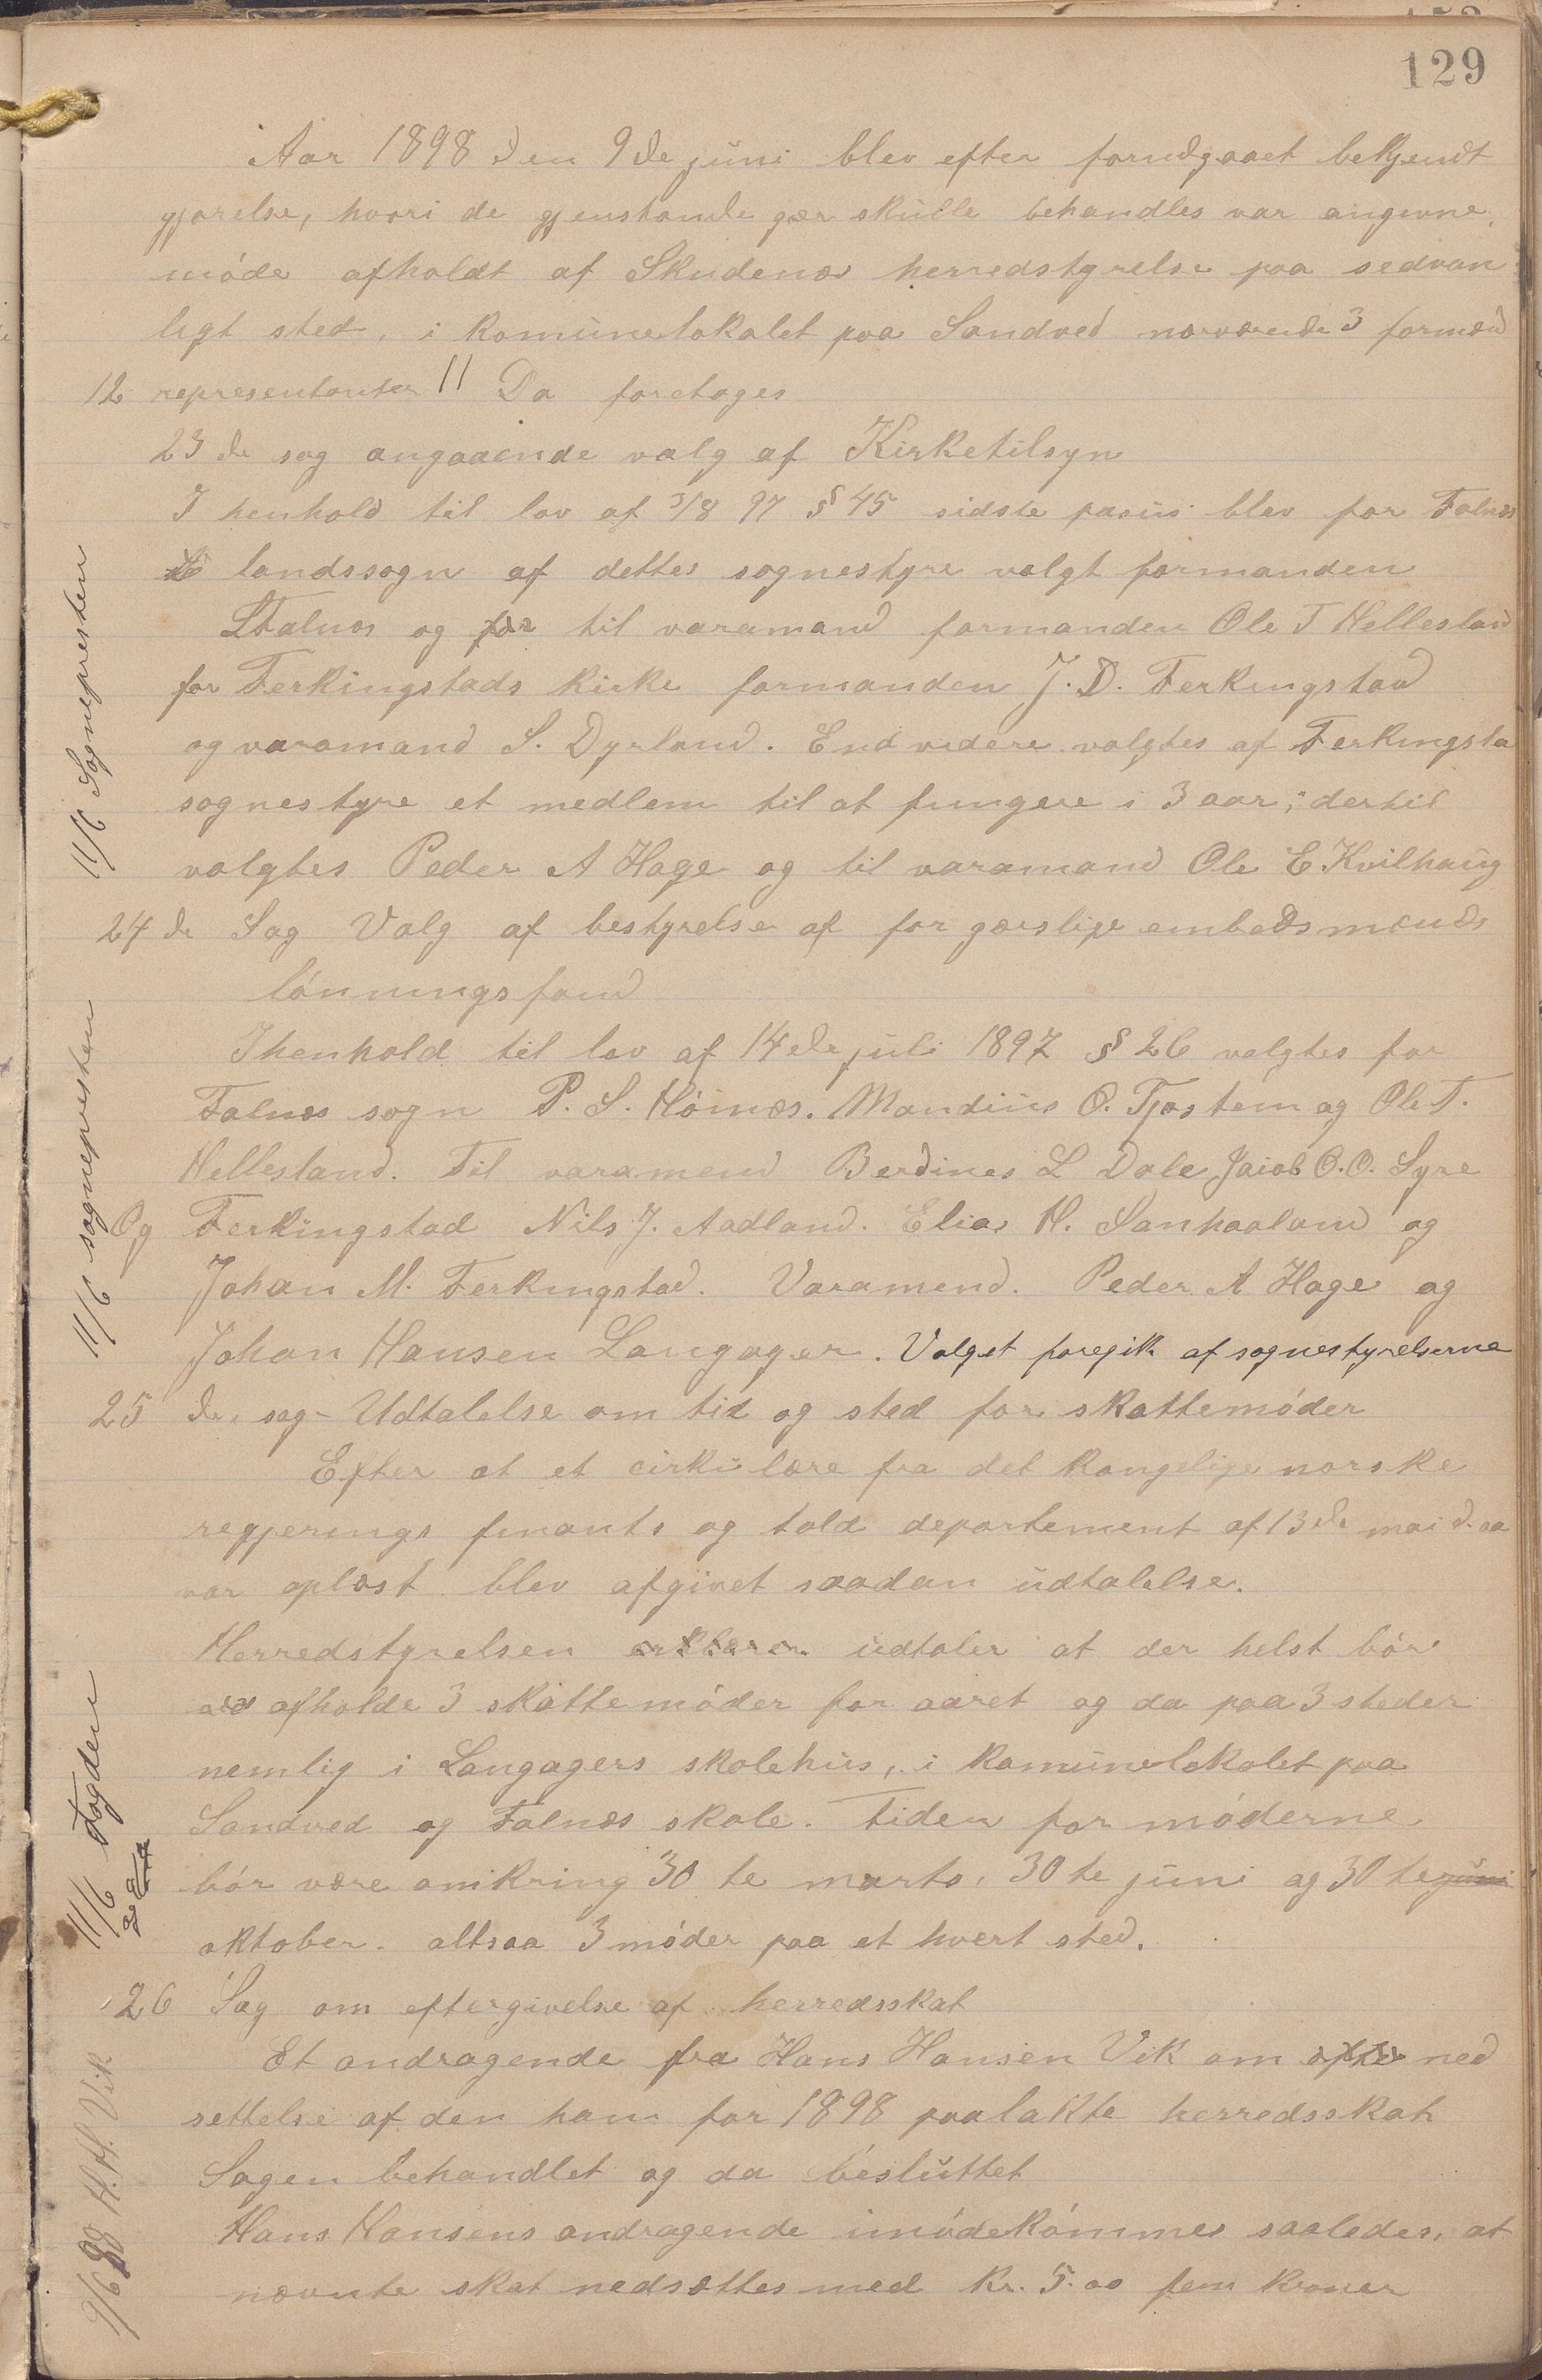 129
Aar 1898 den 9de juni blev efter forudgaaet bekjendt
gjørelse, hvori de gjenstande der skulle behandles var angivne,
møde afholdt af Skudenæs herredstyrelse paa sedvan
ligt sted, i komunelokalet paa Sandved nærværende 3 formænd
12 representanter 11 Da foretages
23 de sag angaaende valg af Kirketilsyn
I henhold til lov af 3/8 97 § 45 sidste pasus blev for Falnæs
landssogn af dettes sognestyre valgt formanden
L Falnæs og for til varamand formanden Ole T Hellesland
for Ferkingstads kirke formanden J. D. Ferkingstad
og varamand S. Dyrland. End videre valgtes af Ferkingsta
sognestyre et medlem til at fungere i 3 aar, dertil
valgtes Peder A Hage og til varamand Ole E Kvilhaug
24 de Sag Valg af bestyrelse af for geislige embedsmænds
lønningsfond
I henhold til lov af 14de juli 1897 § 26 valgtes for
Falnæs sogn P. S. Hómæs. Mandius O. Tjøstem og Ole T.
Hellesland. Til varamend Berdines L Dale Jacob O. O. Syre
Og Ferkingstad Nils J. Aadland. Elias H. Sanhaaland og
Johan M. Ferkingstad. Varamend. Peder A Hage og
Johan Hansen Langager. Valget foregik af sognestyrelserne
25 de sag - Udtalelse om tid og sted for skattemøder
Efter at et cirkulære fra det kongelige norske
regjerings finants og told departement af 13de mai d. aa
var oplæst blev afgivet saadan udtalelse.
Herredstyrelsen erklærer udtaler at der helst bør
afholde 3 skattemøder for aaret og da paa 3 steder
nemlig i Langagers skolehus, i komunelokalet paa
Sandved og Falnæs skole. Tiden for møderne
bør være omkring 30 te marts, 30 te juni og 30 te juni
oktober. altsaa 3 møder paa et hvert sted.
26 Sag om eftergivelse af herredsskat
Et andragende fra Hans Hansen Vik om efter ned
settelse af den ham for 1898 paalakte herredsskat
Sagen behandlet og da besluttet
Hans Hansens andragende imødekommes saaledes, at
nævnte skat nedsættes med Kr. 5.00 fem kroner
11/6 Sognepresten
11/6 sognepresten
11/6 Fogden
9/6 98 H. H. Vik